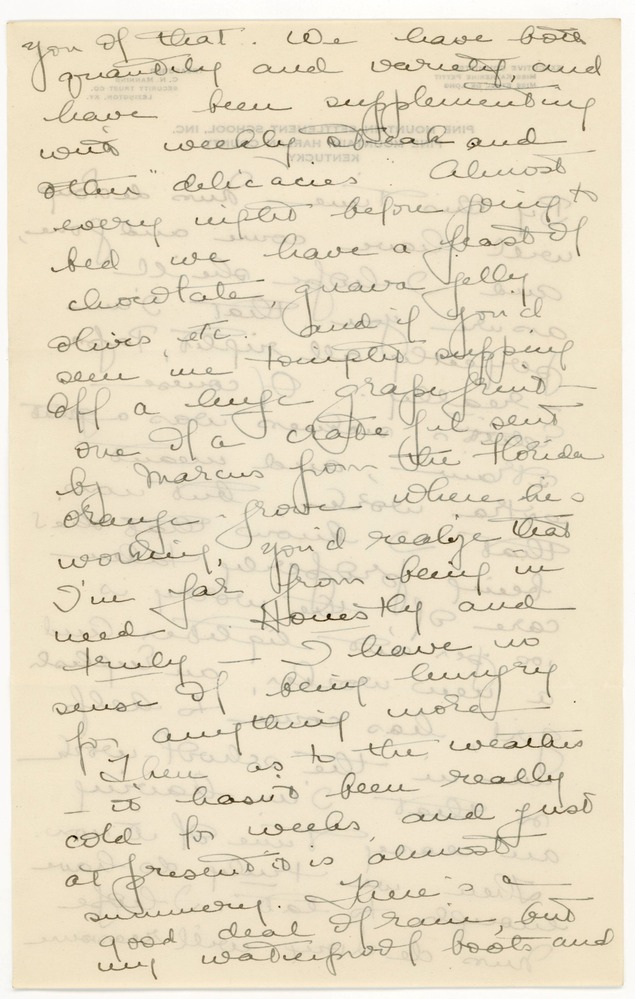 you of that. We have both
quantity and variety, and
have been supplementing
with weekly steak and
other "delicacies". Almost
every night before going to
bed we have a feast of
chocolate, guava jelly,
olives, etc. And if you'd
seen me tonight supping
off a huge grapefruit —
one of a crate full sent
by Marcus from the Florida
orange grove where he's
working, you'd realize that
I'm far from being in
need. Honestly and
truly — I have no
sense of being hungry
for anything more —
Then as to the weather
— it hasn't been really
cold for weeks, and just
at present it is almost
summery. There's a
good deal of rain, but
my waterproof boots and
PINE MOUNTAIN SETTLEMENT SCHOOL, INC.
KENTUCKY